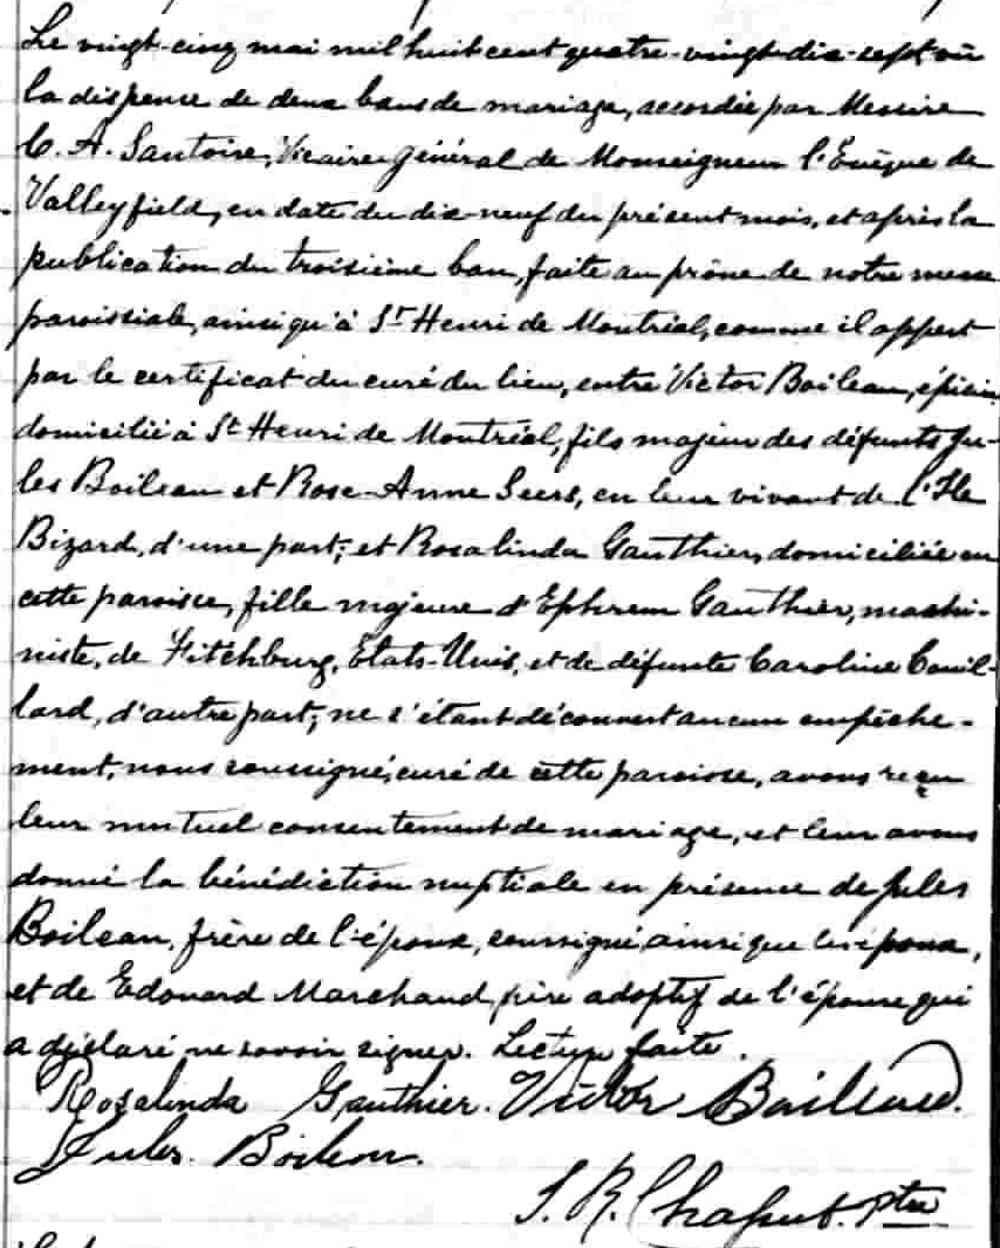 Le vingt-cinq mai mil huit cent quatre-vingt-dix-sept vu
la dispense de deux bans de mariage, accordée par Messire
C. A. Santoire, Vicaire général de Monseigneur l'Evêque de
Valleyfield, en date du dix-neuf du présent mois, et après la
publication du troisième ban, faite au prône de notre messe
paroissiale, ainsi qu'à St Henri de Montréal, comme il appert
par le certificat du curé du lieu, entre Victor Boileau, épicier
domicilié à St Henri de Montréal, fils majeur des défunts Ju-
les Boileau et Rose-Anne Seers, en leur vivant de l'Ile
Bizard, d'une part; et Rosalinda Gauthier, domiciliée en
cette paroisse, fille majeure d'Ephrem Gauthier, machi-
niste, de Fitchburg, Etats-Unis, et de défunte Caroline Couil-
lard, d'autre part; ne s'étant découvert aucun empêche-
ment, nous soussigné, curé de cette paroisse, avons reçu
leur mutuel consentement de mariage, et leur avons
donné la bénédiction nuptiale en présence de Jules
Boileau, frère de l'époux, soussigné ainsi que les époux,
et de Edouard Marchand, père adoptif de l'épouse qui
a déclaré ne savoir signer. Lecture faite.
Rosalinda Gauthier. Victor Boileau.
Jules Boileau.
J. R. Chaput. Ptre